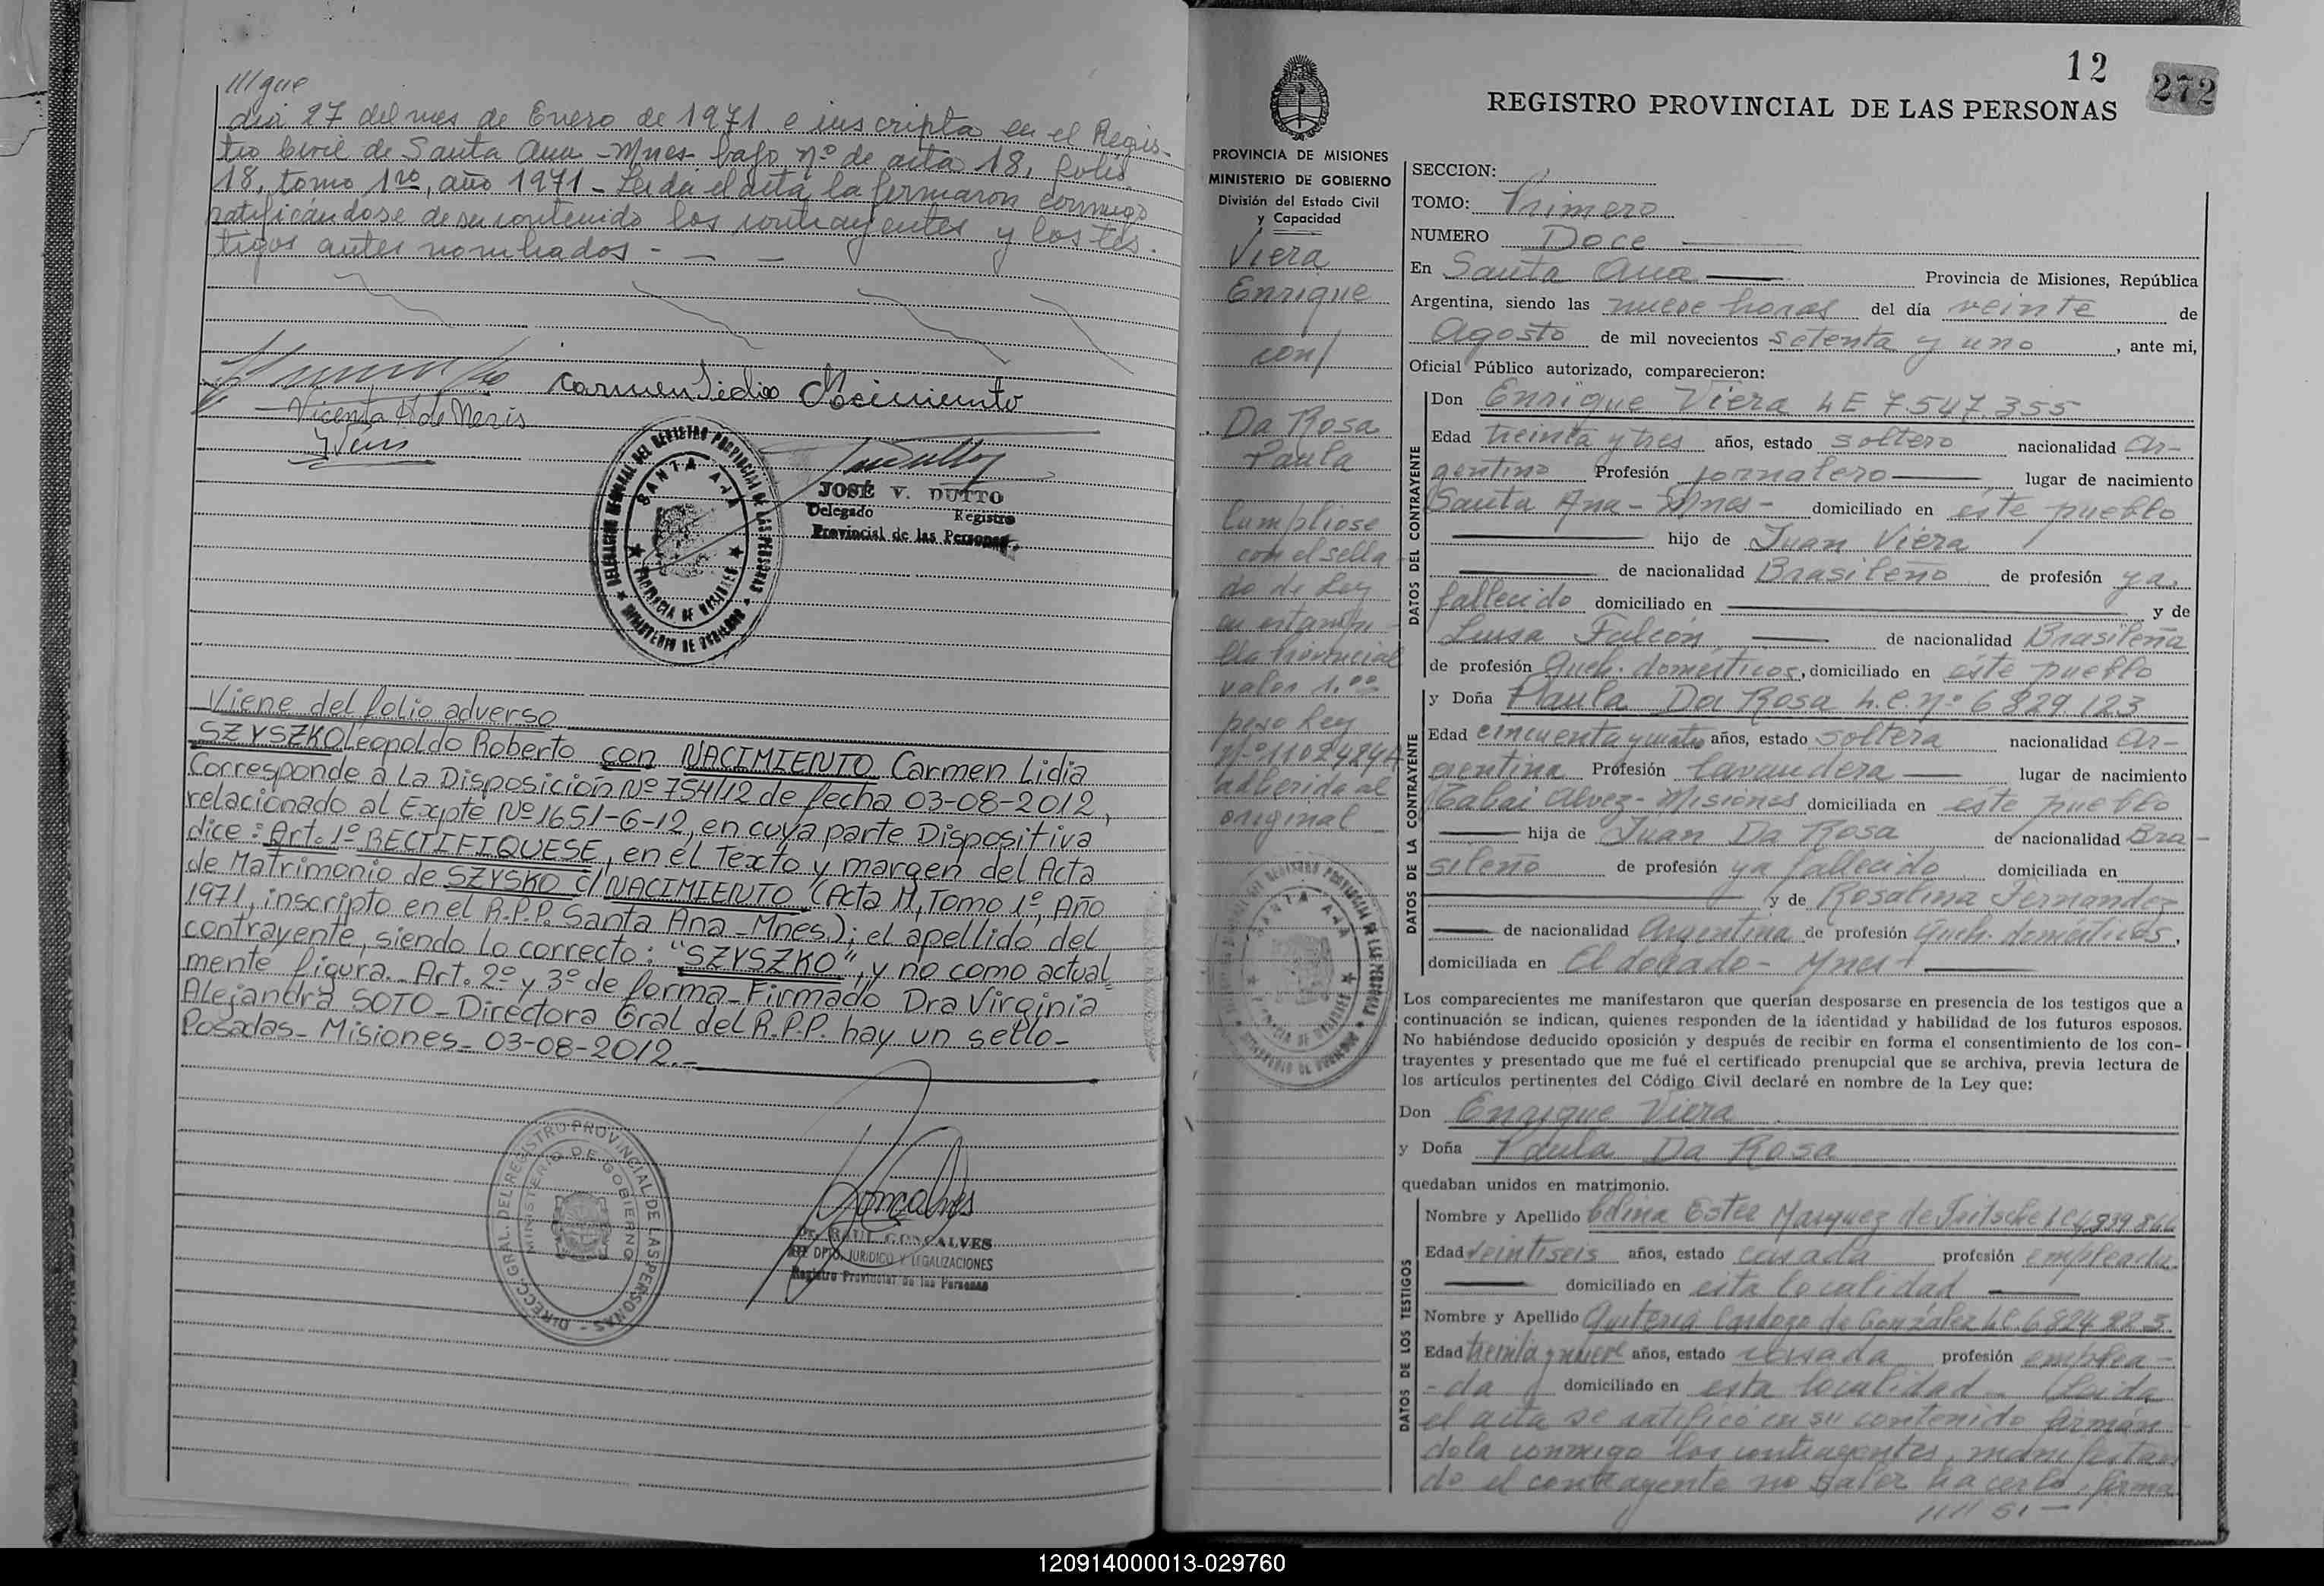 ///que
día 27 del mes de Enero de 1971 e inscripta en el Regis-
tro Civil de Santa Ana - Mnes - bajo nº de acta 18, folio
18, tomo 1ro, año 1971 - Leída el acta, la firmaron conmigo
ratificándose de su contenido los contrayentes y los tes-
tigos antes nombrados - — —
Carmen Lidia Nacimiento
Vicenta H de Neris
DELEGACION REGIONAL DEL REGISTRO PROVINCIAL DE LAS PERSONAS
SANTA ANA
PROVINCIA DE MISIONES
MINISTERIO DE GOBIERNO
JOSÉ V. DUTTO
Delegado Registro
Provincial de las Personas
Viene del folio adverso
SZYSZKO Leopoldo Roberto con NACIMIENTO Carmen Lidia
Corresponde a La Disposición Nº 754/12 de fecha 03-08-2012,
relacionado al Expte Nº 1651-G-12, en cuya parte Dispositiva
dice: Art. 1º RECTIFIQUESE, en el Texto y margen del Acta
de Matrimonio de SZYSKO c/ NACIMIENTO (Acta 11, Tomo 1º, Año
1971, inscripto en el R.P.P. Santa Ana - Mnes.); el apellido del
contrayente, siendo lo correcto: "SZYSZKO", y no como actual=
mente figura. Art. 2º y 3º de forma - Firmado Dra Virginia
Alejandra SOTO - Directora Gral del R.P.P. hay un sello -
Posadas - Misiones - 03-08-2012. -
DIRECC. GRAL. DEL REGISTRO PROVINCIAL DE LAS PERSONAS
MINISTERIO DE GOBIERNO
Gonçalves
Dr. RAUL GONCALVES
DPTO. JURIDICO Y LEGALIZACIONES
Registro Provincial de las Personas
12
272
REGISTRO PROVINCIAL DE LAS PERSONAS
PROVINCIA DE MISIONES
MINISTERIO DE GOBIERNO
División del Estado Civil
y Capacidad
Viera
Enrique
con/
Da Rosa
Paula
Cumpliose
con el sella
do de Ley
en estampi-
lla Provincial
valor 1.00
peso Ley
adherida al
original
DELEGACION REGIONAL DEL REGISTRO PROVINCIAL DE LAS PERSONAS
SANTA ANA
PROVINCIA DE MISIONES
MINISTERIO DE GOBIERNO
SECCION:
TOMO: Primero
NUMERO Doce
En Santa Ana Provincia de Misiones, República
Argentina, siendo las nueve horas del día veinte de
Agosto de mil novecientos setenta y uno, ante mi,
Oficial Público autorizado, comparecieron:
DATOS DEL CONTRAYENTE
Don Enrique Viera LE 7.547.355
Edad treinta y tres años, estado soltero nacionalidad ar-
gentino Profesión jornalero lugar de nacimiento
Santa Ana - Mnes - domiciliado en éste pueblo
hijo de Juan Viera
de nacionalidad Brasileño de profesión ya
fallecido domiciliado en y de
Luisa Falcón de nacionalidad Brasileña
de profesión Queh. domésticos, domiciliado en éste pueblo
DATOS DE LA CONTRAYENTE
y Doña Paula Da Rosa L.C. nº 6 829.123
Edad cincuenta y cuatro años, estado soltera nacionalidad Ar-
gentina Profesión lavandera lugar de nacimiento
Tabai Alvez - Misiones domiciliada en este pueblo
hija de Juan Da Rosa de nacionalidad Bra-
sileño de profesión ya fallecido domiciliada en
y de Rosalina Fernandez
de nacionalidad Argentina de profesión Queh. domésticos,
domiciliada en El dorado - Mnes -
Los comparecientes me manifestaron que querían desposarse en presencia de los testigos que a
continuación se indican, quienes responden de la identidad y habilidad de los futuros esposos.
No habiéndose deducido oposición y después de recibir en forma el consentimiento de los con-
trayentes y presentado que me fué el certificado prenupcial que se archiva, previa lectura de
los artículos pertinentes del Código Civil declaré en nombre de la Ley que:
Don Enrique Viera
y Doña Paula Da Rosa
quedaban unidos en matrimonio.
DATOS DE LOS TESTIGOS
Nombre y Apellido Celina Ester Marquez de Fritsche
Edad veintiseis años, estado casada profesión empleada
domiciliado en esta localidad
Nombre y Apellido Quiteria Cardozo de González LC. 6 824 883
Edad treinta y nueve años, estado casada profesión emplea-
-da domiciliado en esta localidad - Leída
el acta se ratificó en su contenido firmán
dola conmigo los contrayentes, manifestan
do el contrayente no saber hacerlo, firma
//// si -
120914000013-029760